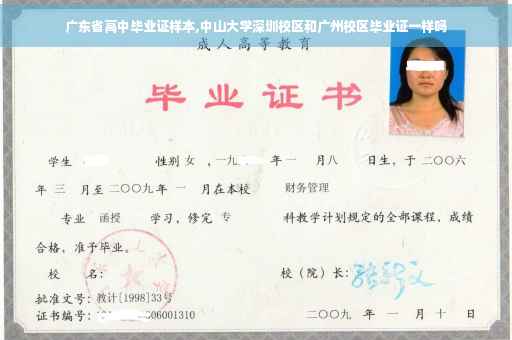 广东省高中毕业证样本,中山大学深圳校区和广州校区毕业证一样吗
成人高等教育
毕业证书
学生 性别 女 ,一九 年一 月八 日生,于二〇〇六
年 三 月至二〇〇九年 一 月在本校 财务管理
专业 函授 学习,修完 专 科教学计划规定的全部课程,成绩
合格,准予毕业。
校 名: 校(院)长:
批准文号:教计[1998]33号
证书编号: 06001310 二〇〇九 年 一 月 十 日